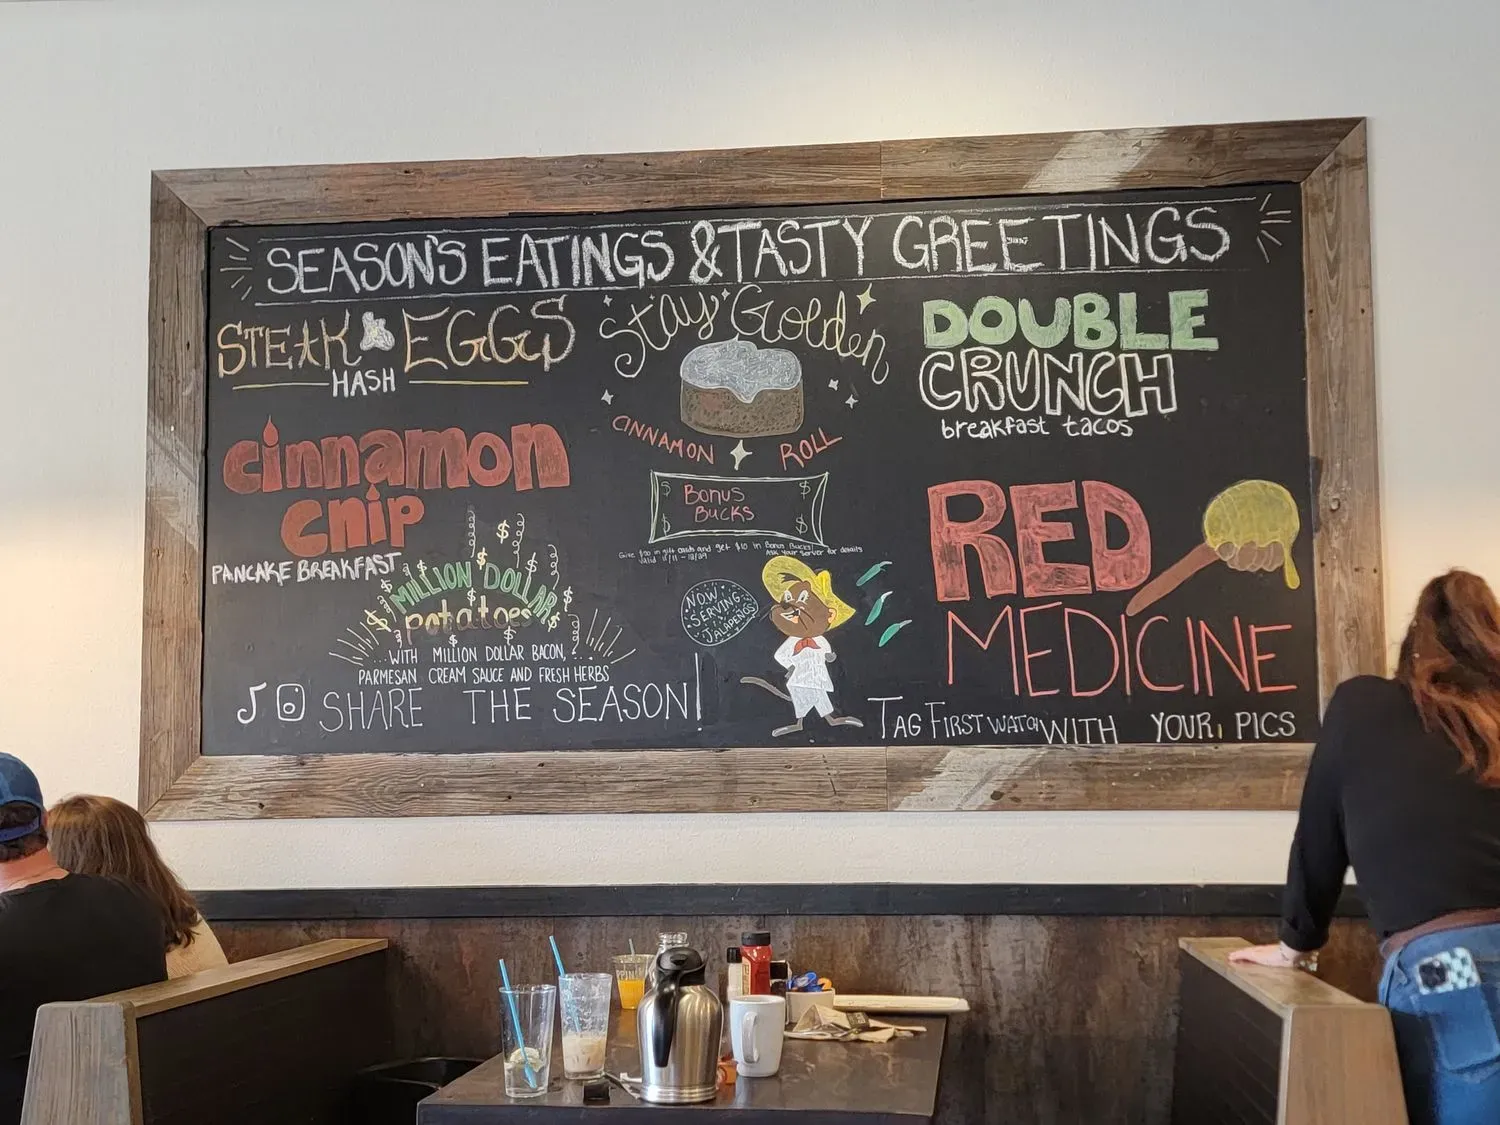 SEASON'S EATINGS & TASTY GREETINGS
STEAK & EGGS
HASH
Stay Golden
CINNAMON ROLL
DOUBLE
CRUNCH
breakfast tacos
cinnamon
chip
PANCAKE BREAKFAST
BONUS
BUCKS
Give $50 in gift cards and get $10 in Bonus Bucks!
Ask your server for details
MILLION DOLLAR
potatoes
...WITH MILLION DOLLAR BACON,...
PARMESAN CREAM SAUCE AND FRESH HERBS
NOW
SERVING
JALAPEÑOS
RED
MEDICINE
SHARE THE SEASON!
TAG FIRST WATCH WITH YOUR PICS